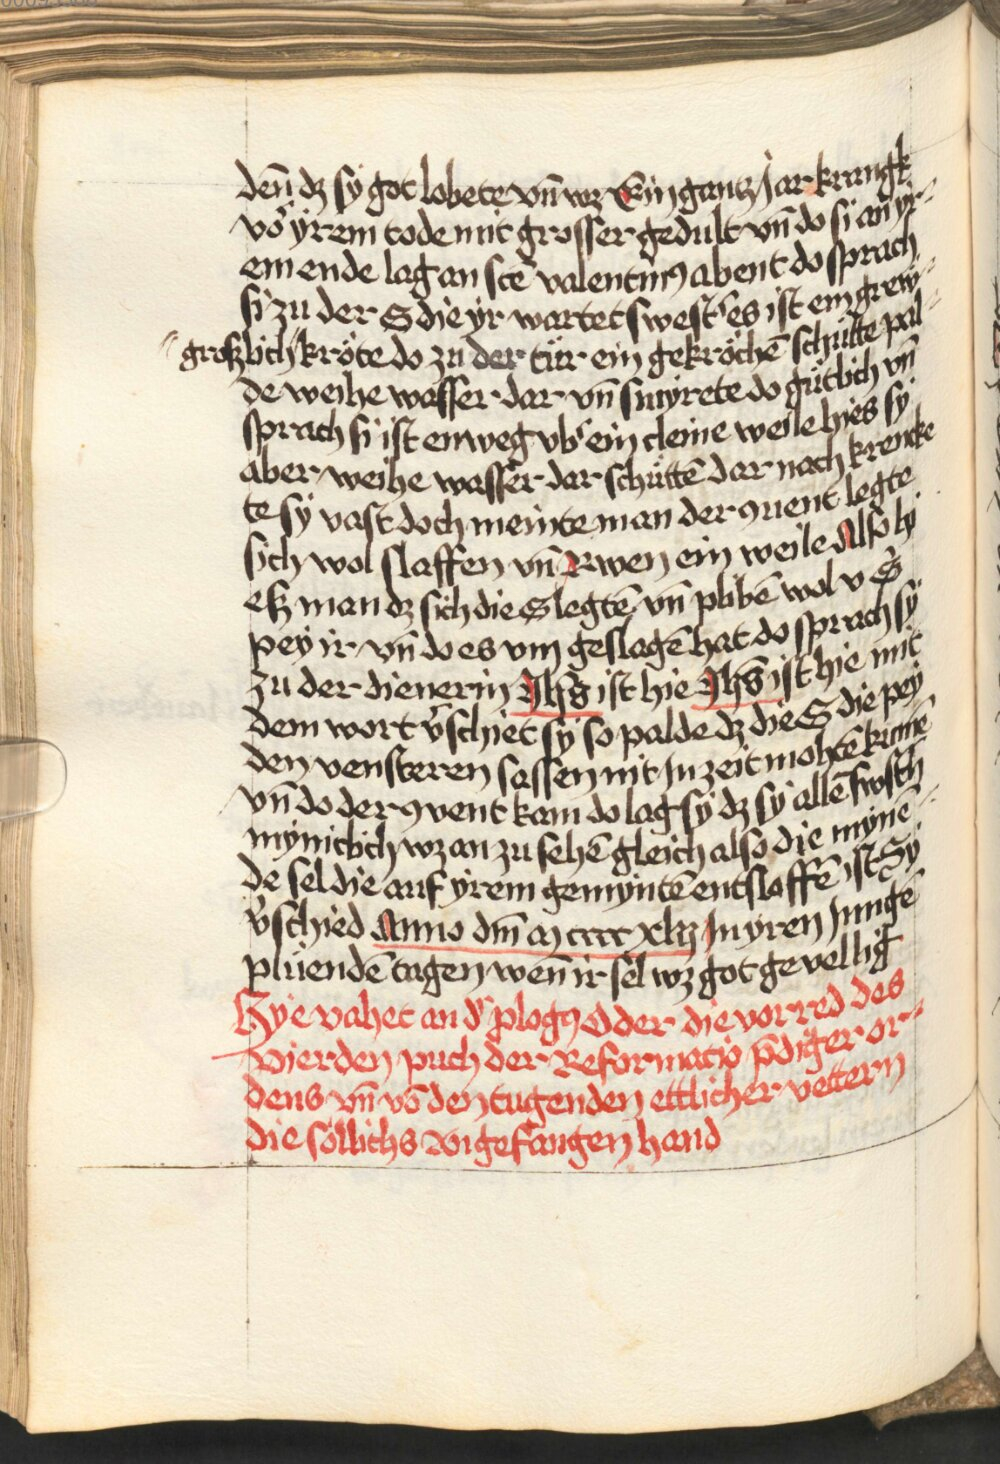 den dz sy got lobete vn̄ wz Ein gantz Jar krangk
vo᷑ yrem tode mit grosser gedult vn̄ do si an yr⸗
em ende lag an sce᷑ valentinꝯ abent do sprach
si zu der S die yr wartet swest᷑ es ist ein grew⸗
großlich kröte do zu der tür ein gekröchē schütte pal⸗
de weihe wasser dar vn̄ smyrete do gütlich vn̄
sprach si ist enweg vb᷑ ein cleine weile hies sy
aber weihe wasser dar schüttē dar nach krencke
te sy vast doch meinte man der ꝯuent legte
sich wol slaffen vn̄ Rwen ein weile Also ly
eß man dz sich die S legtē vn̄ plibē wol v S
pey ir vn̄ do es vm geslagē hat do sprach sy
zu der dienerin Jhs̄ ist hie Jhs̄ ist hie mit
dem wort v᷑schiet sy so palde dz die S die pey
den vensteren sassen nit Jn zeit mohtē kumē
vn̄ do der ꝯvent kam do lag sy dz sy allē swest᷑n
mynitlich wz an zu sehē gleich also die mynē⸗
de sel die auf yrem gemyntē entslaffē ist Sy
v᷑schied Anno dm̄ m cccc xlij Jn yren Jungē
plüendē tagen wen̄ ir sel wz got gevellig
Hye vahet an d᷑ plogꝯ Oder die vorred des
vierden puch der Reformatio p᷑diger or⸗
dens vn̄ vō den tugenden ettlicher vettern
die söllichs Angefangen hand